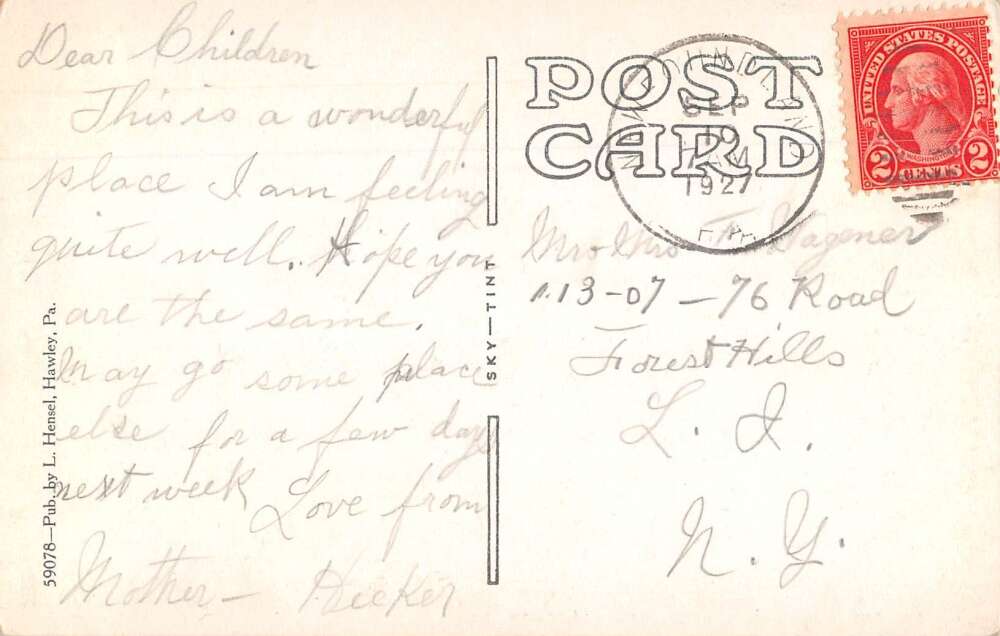 Dear Children
This is a wonderful
place I am feeling
quite well. Hope you
are the same.
May go some place
else for a few days
next week Love from
Mother - Hecker
59078—Pub. by L. Hensel, Hawley, Pa.
SKY—TINT
POST
CARD
SEP
19
AM
1927
UNITED STATES POSTAGE
WASHINGTON
2 CENTS 2
Mr. Mrs. Wagener
113-07-76 Road
Forest Hills
L. I.
N. Y.